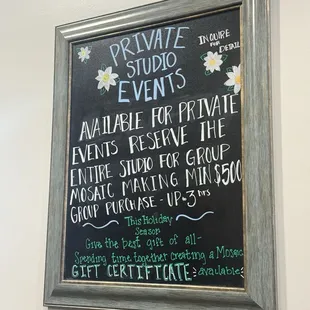 PRIVATE
STUDIO
EVENTS
INQUIRE
FOR
DETAIL
AVAILABLE FOR PRIVATE
EVENTS RESERVE THE
ENTIRE STUDIO FOR GROUP
MOSAIC MAKING MIN $500
GROUP PURCHASE - UP 3 HRS
This Holiday
Season
Give the best gift of all-
Spending time together creating a Mosaic
GIFT CERTIFICATE available